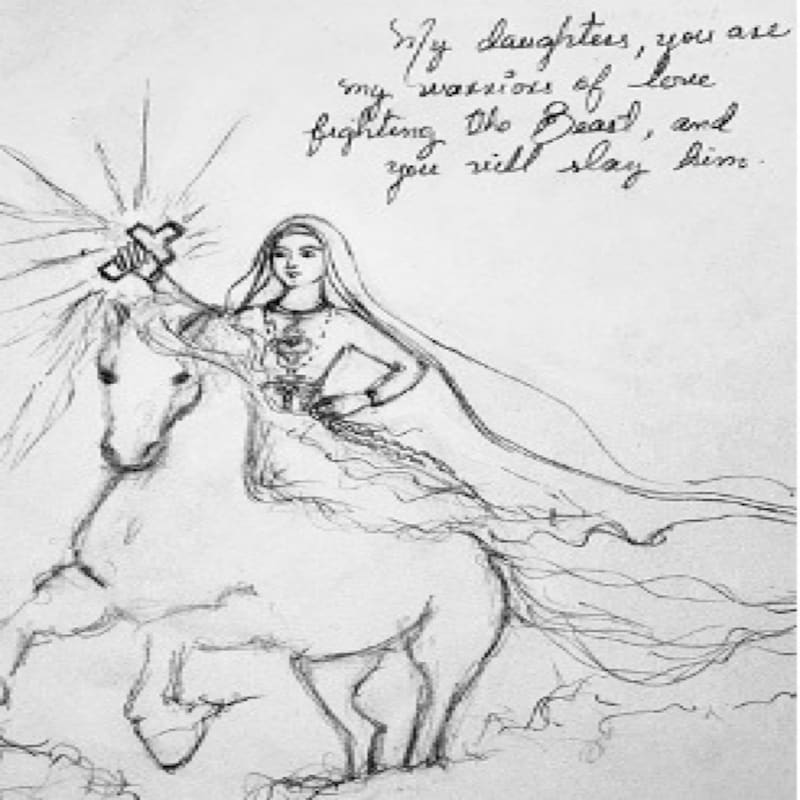 My daughters, you are
my warriors of love
fighting the Beast, and
you will slay him.